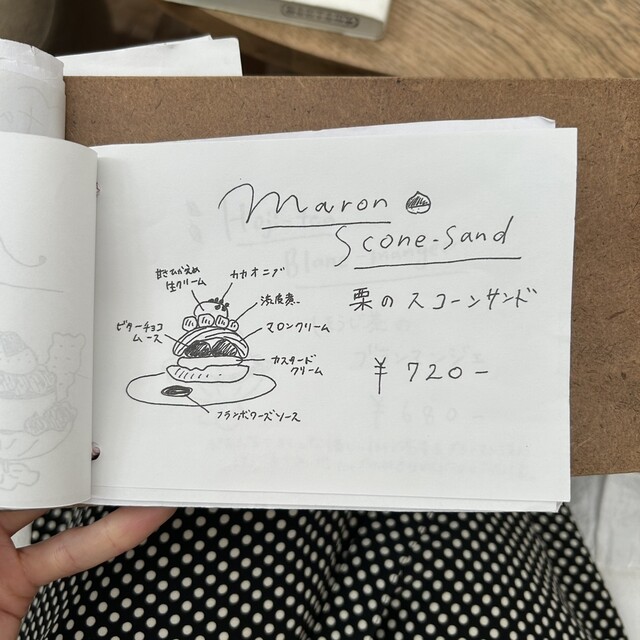 maron
Scone-sand
栗のスコーンサンド
¥720-
甘さひかえめ
生クリーム
カカオニブ
渋皮煮
マロンクリーム
ビターチョコ
ムース
カスタード
クリーム
フランボワーズソース